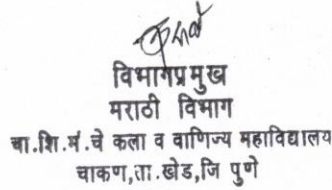 विभागप्रमुख
मराठी विभाग
चा.शि.मं.चे कला व वाणिज्य महाविद्यालय
चाकण,ता.खेड,जि पुणे